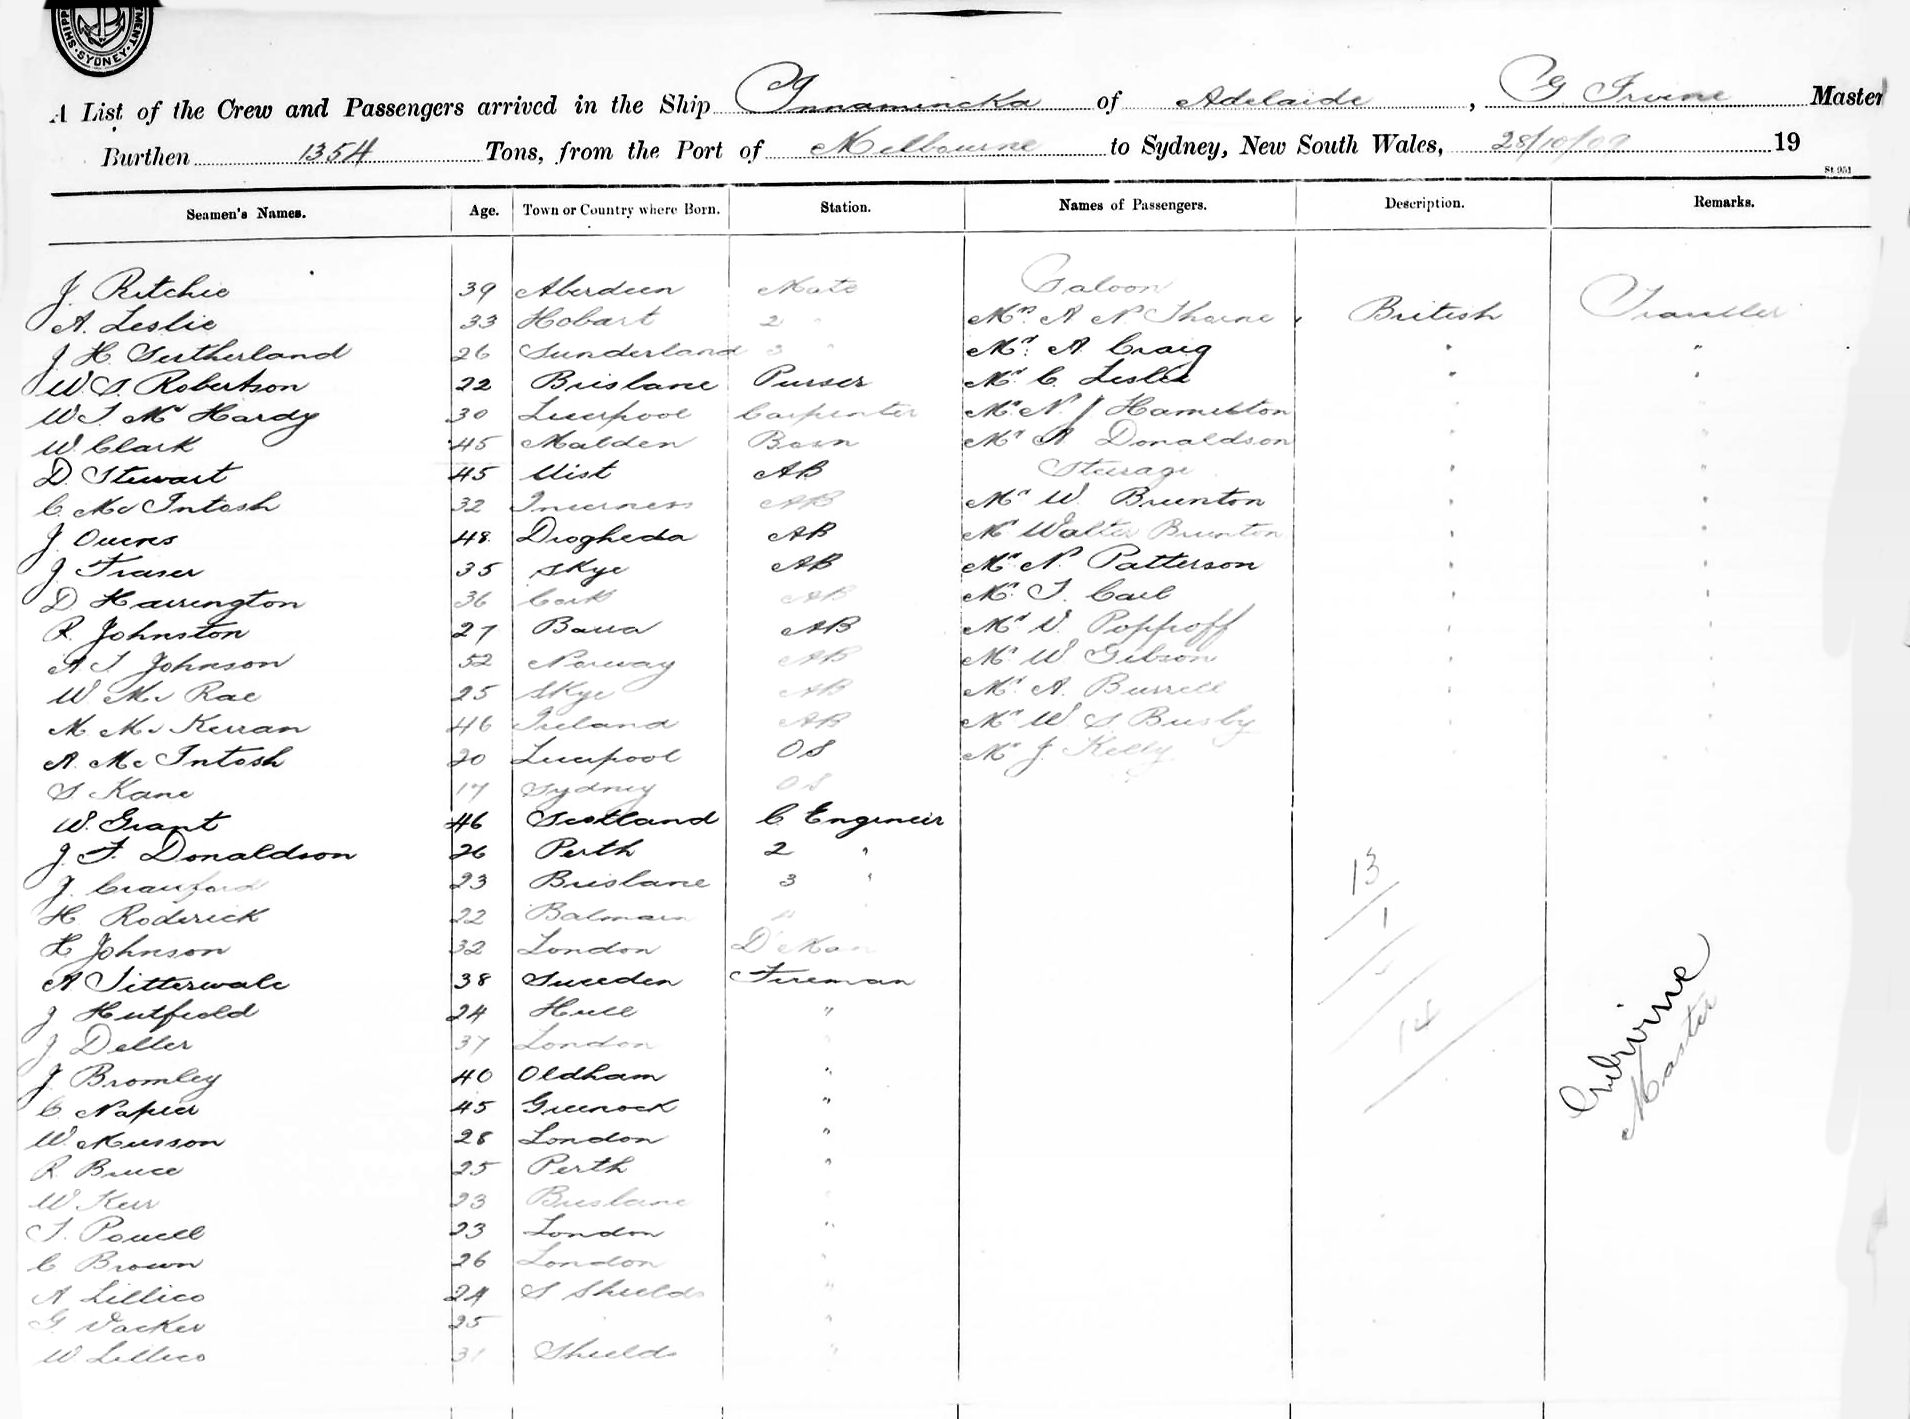 SHIPP MENT · SYDNEY ·
A List of the Crew and Passengers arrived in the Ship Innamincka of Adelaide, G Irvine Master
Burthen 1354 Tons, from the Port of Melbourne to Sydney, New South Wales, 28/10/09 19
St 951
Seamen's Names. Age. Town or Country where Born. Station. Names of Passengers. Description. Remarks.
J. Ritchie 39 Aberdeen Mate Saloon
A. Leslie 33 Hobart 2 " Mr. A N. Thorne British Traveller
J H Sutherland 26 Sunderland 3 " Mr. A. Craig " "
W. S. Robertson 22 Brisbane Purser Mr C. Leslie " "
W T. Mc Hardy 30 Liverpool Carpenter Mr. N. J Hamilton " "
W. Clark 45 Malden Bosn Mr A. Donaldson " "
D. Stewart 45 Uist AB Steerage " "
C. Mc Intosh 32 Inverness AB Mr W. Brunton " "
J. Owens 48 Drogheda AB Mr Walter Brunton " "
J. Fraser 35 Skye AB Mr. N. Patterson " "
D. Harrington 36 Cork AB Mr. T. Carl " "
R. Johnston 27 Barra AB Mr V. Poppoff " "
A T Johnson 52 Norway AB Mr. W Gibson " "
W. Mc Rae 25 Skye AB Mr. A. Burrell " "
M Mc Kerran 46 Ireland AB Mr W S Busby " "
A. Mc Intosh 20 Liverpool OS Mr J. Kelly "
S Kane 17 Sydney OS
W. Grant 46 Scotland C. Engineer
J. F. Donaldson 26 Perth 2 "
J. Crawford 23 Brisbane 3 " 13
H. Roderick 22 Balmain 4 " 1
H Johnson 32 London D'kMan
A Sitterwale 38 Sweden Fireman
J Hutfield 24 Hull " 14
J Deller 37 London "
J. Bromley 40 Oldham "
C. Napier 45 Greenock "
W. Musson 28 London "
R. Bruce 25 Perth "
W Kerr 23 Brisbane "
T. Powell 23 London "
C Brown 26 London "
A Lillico 24 S Shields "
G Vacker 25 "
W Lillico 31 Shields "
G Irvine
Master